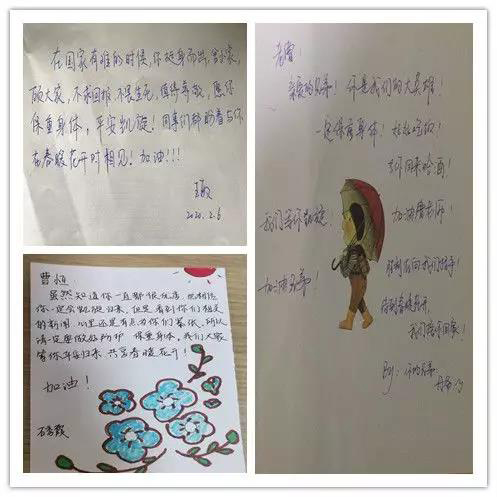 在国家有难的时候,你挺身而出,舍小家,
顾大家,不求回报,不畏生死,值得尊敬,愿你
保重身体,平安凯旋!同事们都盼着与你
在春暖花开时相见!加油!!!
2020.2.6
曹恒
虽然知道你一直都很优秀,也相信
你一定会凯旋归来,但是看到你们相关
的新闻,心里还是有点为你们紧张,所以
请一定要做好防护,保重身体,我们大家
等你平安归来 共赏春暖花开!
加油!
老曹:
亲爱的兄弟!你是我们的大英雄!
一定保重身体!好好吃饭!
等你回来喝酒!
我们等你凯旋
加油曹老师!
加油兄弟!
胜利在向我们招手!
待到春暖花开,
我们陪你回家!
By:你的兄弟